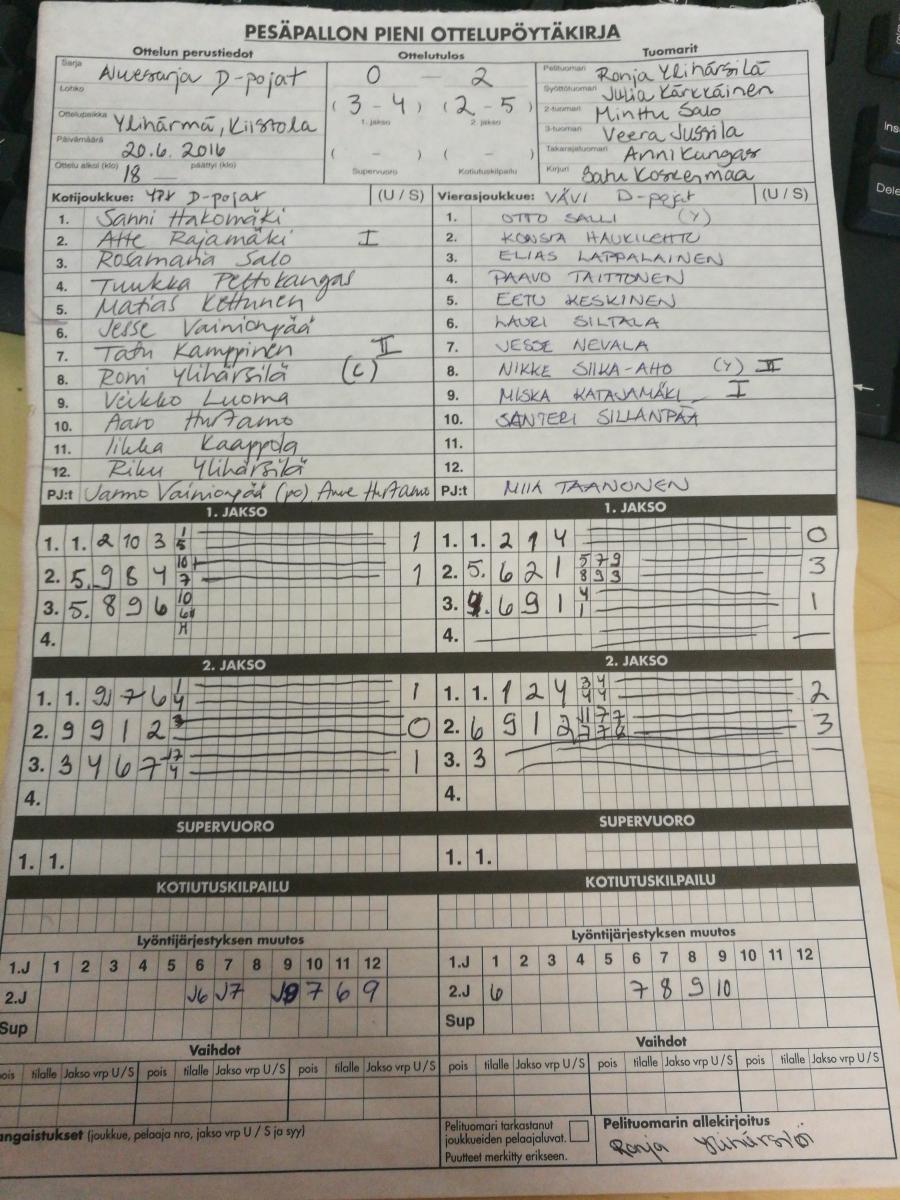 PESÄPALLON PIENI OTTELUPÖYTÄKIRJA
Ottelun perustiedot Ottelutulos Tuomarit
Sarja Aluesarja D-pojat 0 - 2 Pelituomari Ronja Ylihärsilä
Lohko (3 - 4) (2 - 5) Syöttötuomari Julia Kärkkäinen
1. jakso 2. jakso 2-tuomari Minttu Salo
Ottelupaikka Ylihärmä, Kiistola 3-tuomari Veera Jussila
Päivämäärä 20.6. 2016 ( - ) ( - ) Takarajatuomari Anni Kangas
Ottelu alkoi (klo) 18 — päättyi (klo) Supervuoro Kotiutuskilpailu Kirjuri Satu Koskenmaa
Kotijoukkue: YPV D-pojat (U / S) Vierasjoukkue: VÄVI D-pojat (U / S)
1. Sanni Hakomäki 1. OTTO SALLI (Y)
2. Atte Rajamäki I 2. KONSTA HAUKILEHTO
3. Rosamaria Salo 3. ELIAS LAPPALAINEN
4. Tuukka Peltokangas 4. PAAVO TAITTONEN
5. Matias Kettunen 5. EETU KESKINEN
6. Jesse Vainionpää 6. LAURI SILTALA
7. Tatu Kamppinen II 7. JESSE NEVALA
8. Roni Ylihärsilä (C) 8. NIKKE SIIKA-AHO (Y) II
9. Veikko Luoma 9. MISKA KATAJAMÄKI I
10. Aaro Hurtamo 10. SANTERI SILLANPÄÄ
11. Iikka Kaappola 11.
12. Riku Ylihärsilä 12.
PJ:t Jarmo Vainionpää (po) Anne Hurtamo PJ:t MIIA TAANONEN
1. JAKSO 1. JAKSO
1. 1. 2 10 3 1 5 1 1. 1. 2 1 4 0
2. 5. 9 8 4 10 7 1 2. 5. 6 2 1 5 7 9 8 9 3 3
3. 5. 8 9 6 10 3. 6 9 1 4 1 1
4. 4. —
2. JAKSO 2. JAKSO
1. 1. 9 7 6 1 4 1 1. 1. 1 2 4 3 4 4 4 2
2. 9 9 1 2 3 0 2. 6 9 1 2 3
3. 3 4 6 7 4 1 3. 3 —
4. 4.
SUPERVUORO SUPERVUORO
1. 1. 1. 1.
KOTIUTUSKILPAILU KOTIUTUSKILPAILU
Lyöntijärjestyksen muutos Lyöntijärjestyksen muutos
1.J 1 2 3 4 5 6 7 8 9 10 11 12 1.J 1 2 3 4 5 6 7 8 9 10 11 12
2.J J6 J7 7 6 9 2.J 6 7 8 9 10
Sup Sup
Vaihdot Vaihdot
ois tilalle Jakso vrp U / S pois tilalle Jakso vrp U / S pois tilalle Jakso vrp U / S pois tilalle Jakso vrp U / S pois tilalle Jakso vrp U / S pois tilalle Jakso vrp U / S
angaistukset (joukkue, pelaaja nro, jakso vrp U / S ja syy)
Pelituomari tarkastanut
joukkueiden pelaajaluvat.
Puutteet merkitty erikseen.
Pelituomarin allekirjoitus
Ronja Ylihärsilä
Ins
Dele